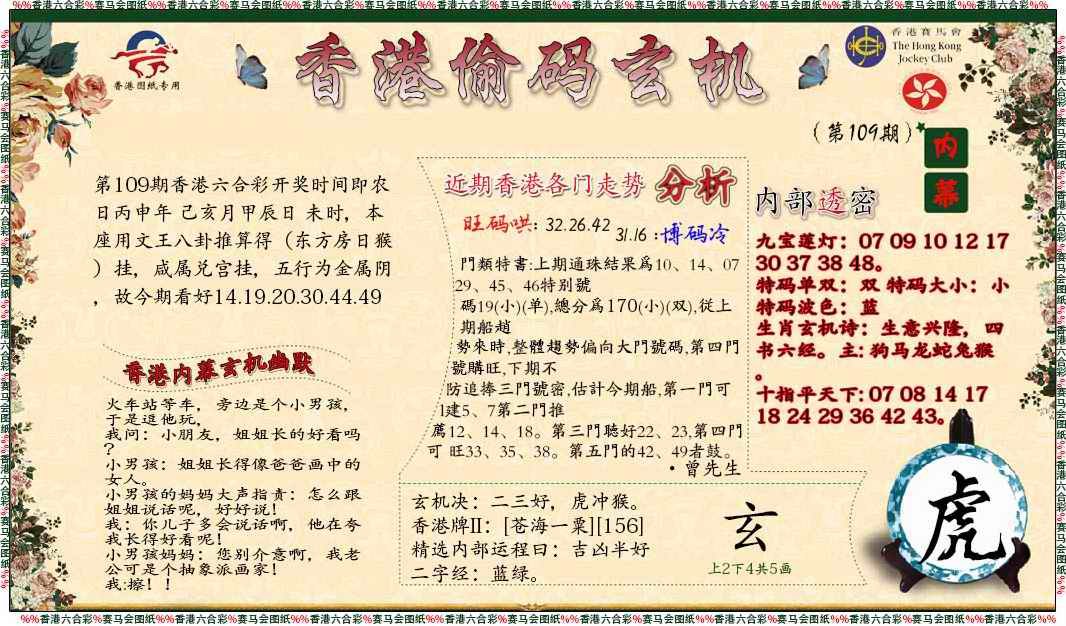 %%香港六合彩%赛马会图纸%%香港六合彩%赛马会图纸%%香港六合彩%赛马会图纸%%香港六合彩%赛马会图纸%%香港六合彩%赛马会图纸%%香港六合彩%%
香港图纸专用
香港偷码玄机
香港賽馬會
The Hong Kong
Jockey Club
(第109期)
内幕
第109期香港六合彩开奖时间即农
日丙申年 己亥月甲辰日 未时，本
座用文王八卦推算得（东方房日猴
）挂，咸属兑宫挂，五行为金属阴
，故今期看好14.19.20.30.44.49
香港内幕玄机幽默
火车站等车，旁边是个小男孩，
于是逗他玩，
我问：小朋友，姐姐长的好看吗
？
小男孩：姐姐长得像爸爸画中的
女人。
小男孩的妈妈大声指责：怎么跟
姐姐说话呢，好好说！
我：你儿子多会说话啊，他在夸
我长得好看呢！
小男孩妈妈：您别介意啊，我老
公可是个抽象派画家！
我:擦！！
近期香港各门走势 分析
旺码哄: 32.26.42
31.16 :博码冷
門類特書:上期通珠結果爲10、14、07
29、45、46特别號
碼19(小)(单),總分爲170(小)(双),從上
期船趙
勢來時,整體趨勢偏向大門號碼,第四門
號購旺,下期不
防追捧三門號密,估計今期船,第一門可
1建5、7第二門推
薦12、14、18。第三門聽好22、23,第四門
可 旺33、35、38。第五門的42、49者鼓。
·曾先生
玄机决：二三好，虎冲猴。
香港牌II：[苍海一粟][156]
精选内部运程曰：吉凶半好
二字经：蓝绿。
玄
上2下4共5画
内部透密
九宝莲灯：07 09 10 12 17
30 37 38 48。
特码单双：双 特码大小：小
特码波色：蓝
生肖玄机诗：生意兴隆，四
书六经。主: 狗马龙蛇兔猴
。
十指平天下: 07 08 14 17
18 24 29 36 42 43。
虎
%%香港六合彩%赛马会图纸%%香港六合彩%赛马会图纸%%香港六合彩%赛马会图纸%%香港六合彩%赛马会图纸%%香港六合彩%赛马会图纸%%香港六合彩%%